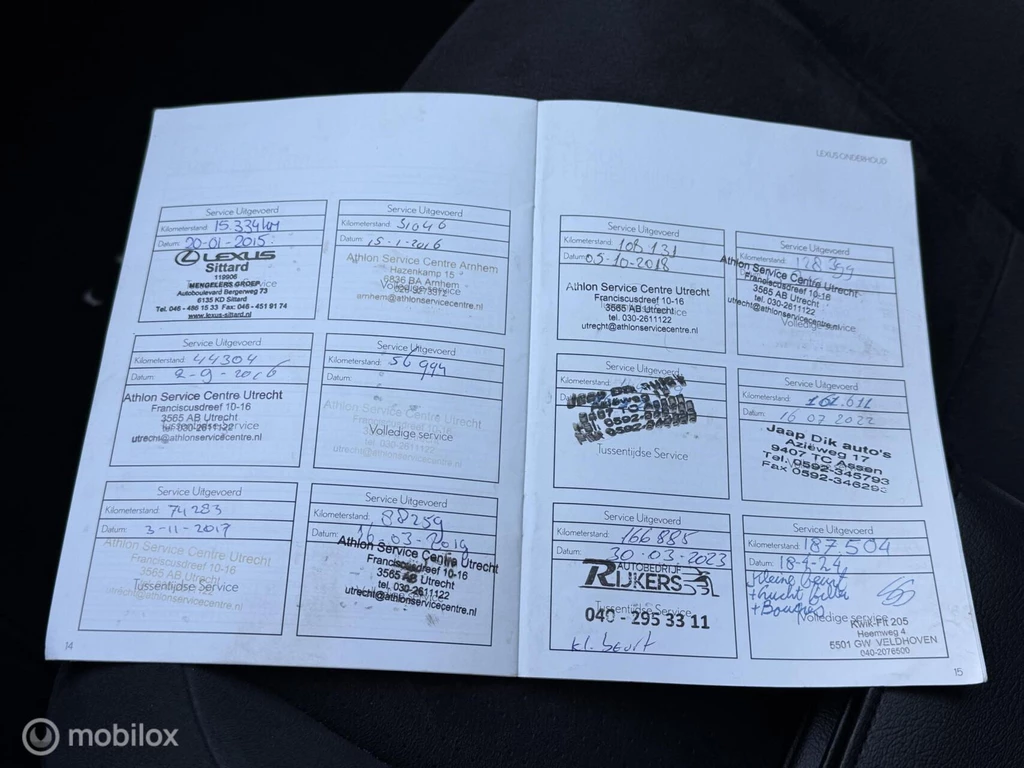 LEXUS ONDERHOUD
Service Uitgevoerd
Kilometerstand: 15.334 km
Datum: 20-01-2015
LEXUS
Sittard
119906
MENGELERS GROEP
Autoboulevard Bergerweg 73
6135 KD Sittard
Tel. 046 - 486 15 33 Fax: 046 - 451 91 74
www.lexus-sittard.nl
Service Uitgevoerd
Kilometerstand: 31046
Datum: 15-1-2016
Athlon Service Centre Arnhem
Hazenkamp 15
6836 BA Arnhem
Volledige service
arnhem@athlonservicecentre.nl
Service Uitgevoerd
Kilometerstand: 44304
Datum: 2-9-2016
Athlon Service Centre Utrecht
Franciscusdreef 10-16
3565 AB Utrecht
tel. 030-2611122
utrecht@athlonservicecentre.nl
Service Uitgevoerd
Kilometerstand: 56994
Datum:
Athlon Service Centre Utrecht
Franciscusdreef 10-16
Volledige service
tel. 030-2611122
utrecht@athlonservicecentre.nl
Service Uitgevoerd
Kilometerstand: 74283
Datum: 3-11-2017
Athlon Service Centre Utrecht
Franciscusdreef 10-16
3565 AB Utrecht
Tussentijdse Service
utrecht@athlonservicecentre.nl
Service Uitgevoerd
Kilometerstand: 88259
Datum: 16-03-2019
Athlon Service Centre Utrecht
Franciscusdreef 10-16
3565 AB Utrecht
tel. 030-2611122
utrecht@athlonservicecentre.nl
14
Service Uitgevoerd
Kilometerstand: 108131
Datum: 05-10-2018
Athlon Service Centre Utrecht
Franciscusdreef 10-16
3565 AB Utrecht
tel. 030-2611122
utrecht@athlonservicecentre.nl
Service Uitgevoerd
Kilometerstand: 128399
Athlon Service Centre Utrecht
Franciscusdreef 10-16
3565 AB Utrecht
tel. 030-2611122
utrecht@athlonservicecentre.nl
Volledige service
Service Uitgevoerd
Kilometerstand:
Datum:
Tussentijdse Service
Service Uitgevoerd
Kilometerstand: 161.611
Datum: 16 07 2022
Jaap Dik auto's
Aziëweg 17
9407 TC Assen
Tel. 0592-345793
Fax 0592-346293
Service Uitgevoerd
Kilometerstand: 166885
Datum: 30-03-2023
AUTOBEDRIJF
RIJKERS
Tussentijdse Service
040 - 295 33 11
kl. beurt
Service Uitgevoerd
Kilometerstand: 187.504
Datum: 18-4-24
Kleine beurt
+ Lucht filter
+ Bougies
Volledige service
Kwik-Fit 205
Heemweg 4
5501 GW VELDHOVEN
040-2076500
15
mobilox